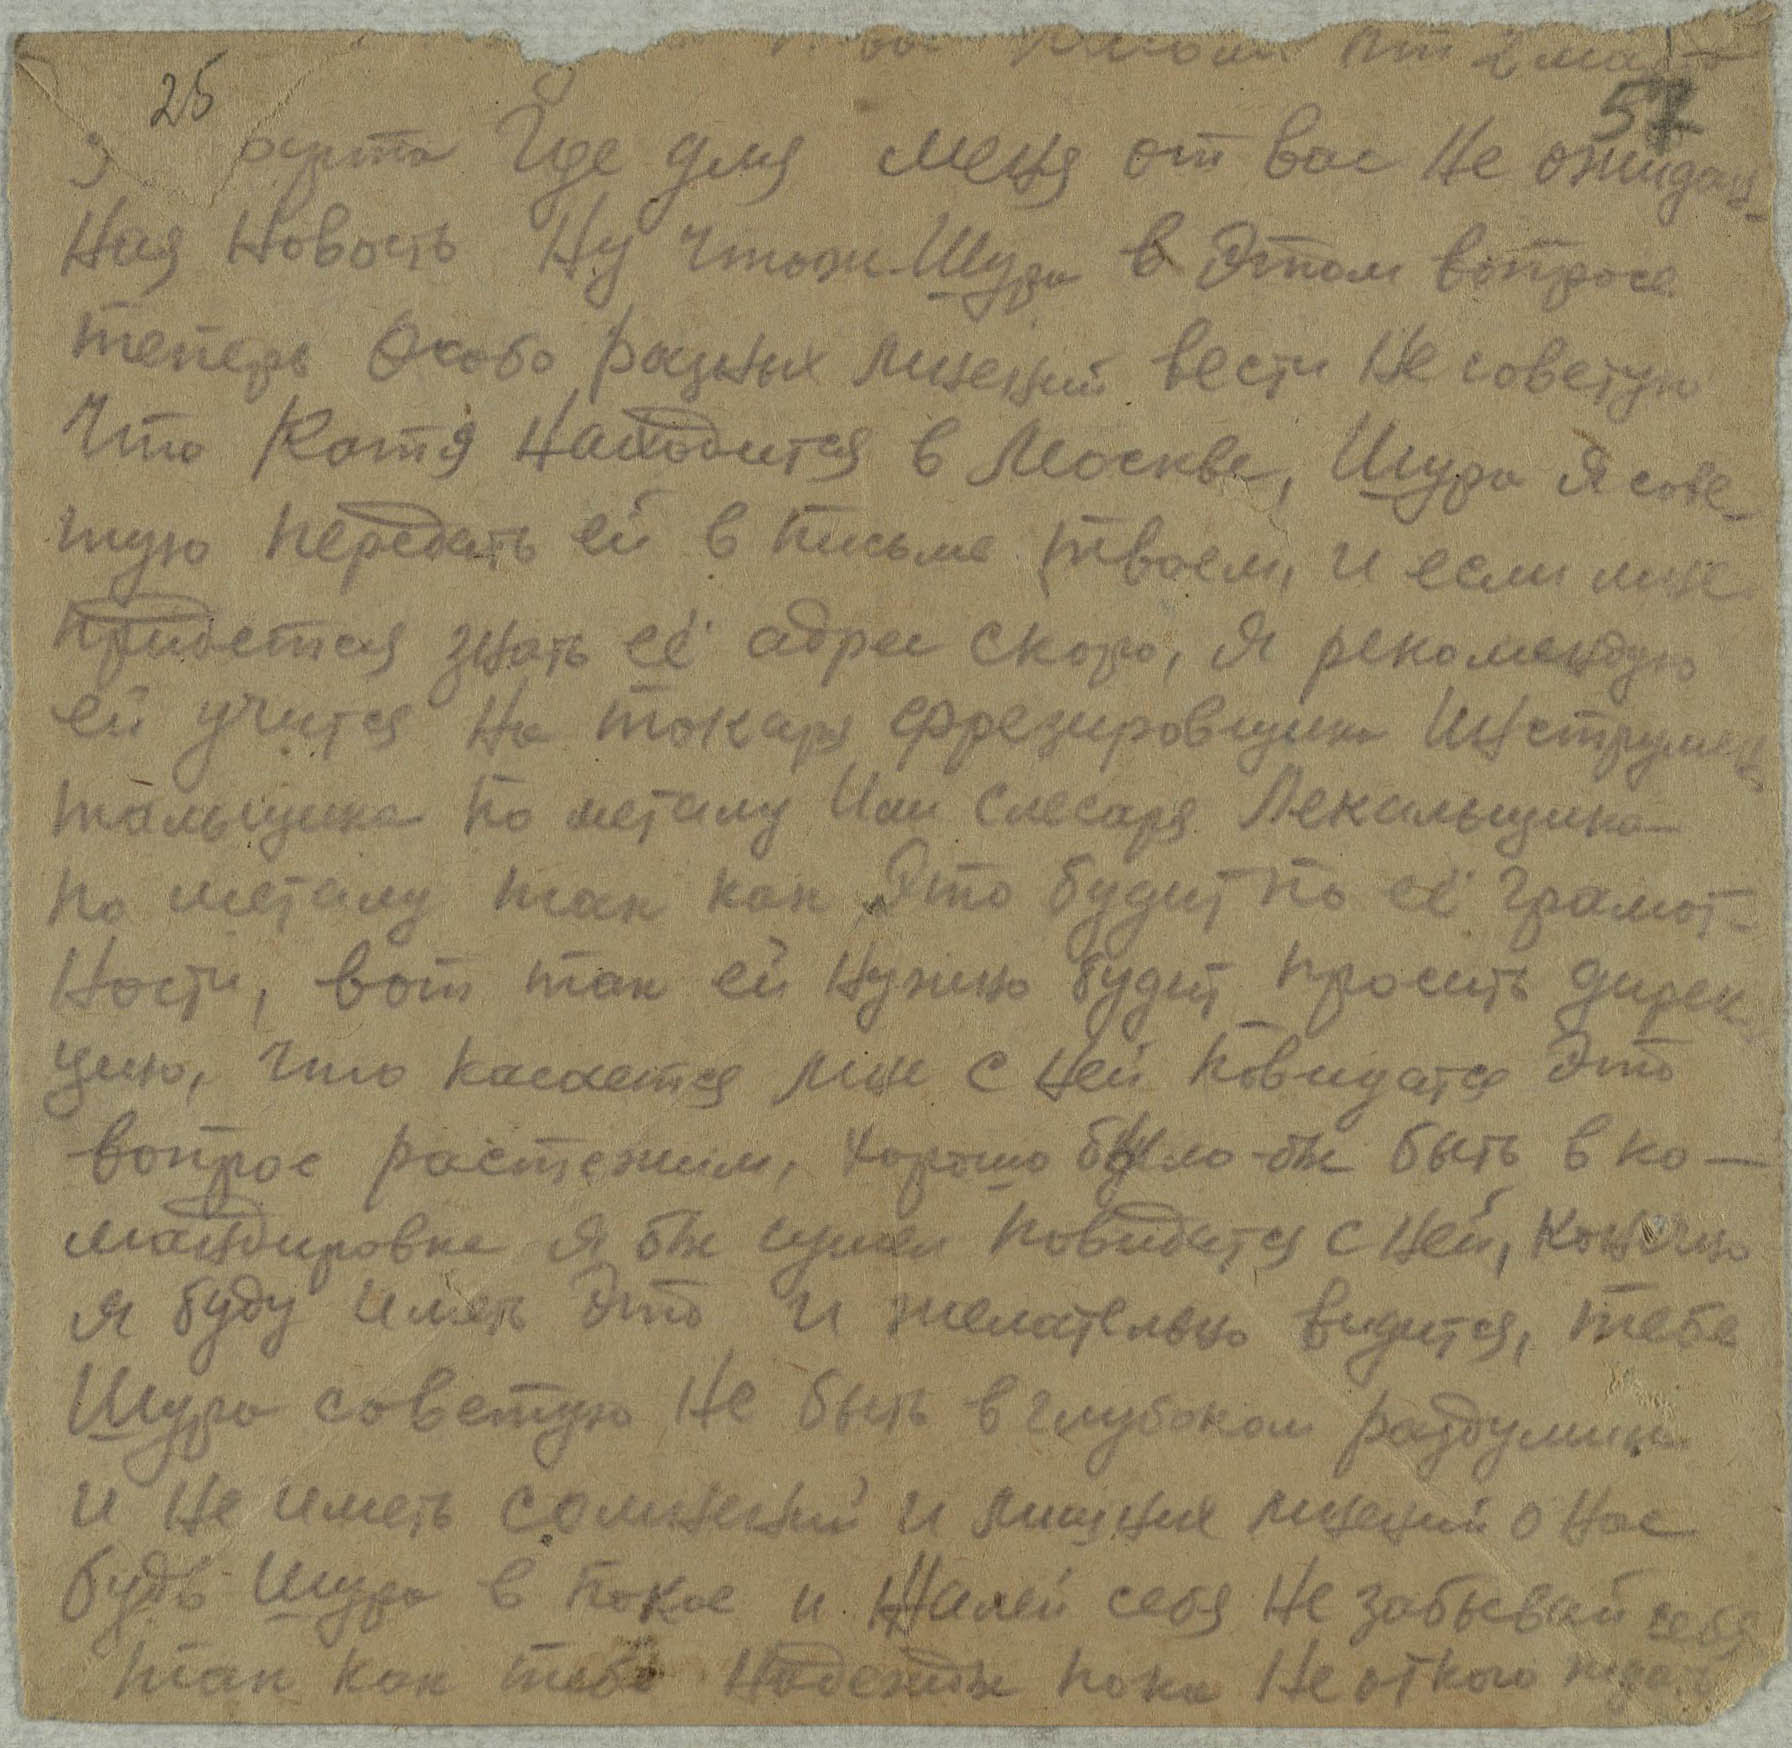 25
57
от 2 марта
марта Где для меня от вас Не ожидан-
Ная Новость Ну Чтож Шура в Этом вопросе
теперь Особо разных мнений вести Не советую
Что Катя Находится в Москве, Шура Я сове-
тую передать ей в письме твоем, и если мне
придется знать её адрес скоро, Я рекомендую
ей учится На токаря фрезировщика Инструмен-
тальщика по металу Или Слесаря Лекальщика
по металу так как Это будит по её грамот-
Ности, вот так ей Нужно будит просить дирек-
цию, что касается мне с Ней повидатся Это
вопрос растежим, хорошо было-бы быть в ко-
мандировке Я бы сумел повидатся с Ней, конечно
Я буду иметь Это и желательно видится, тебе
Шура советую Не быть в глубоком раздумии
и Не иметь сомнений и лишних мнений о Нас
будь Шура в покое и Жалей себя Не забывай себя
так как тебе Надежды пока Не откого ждать